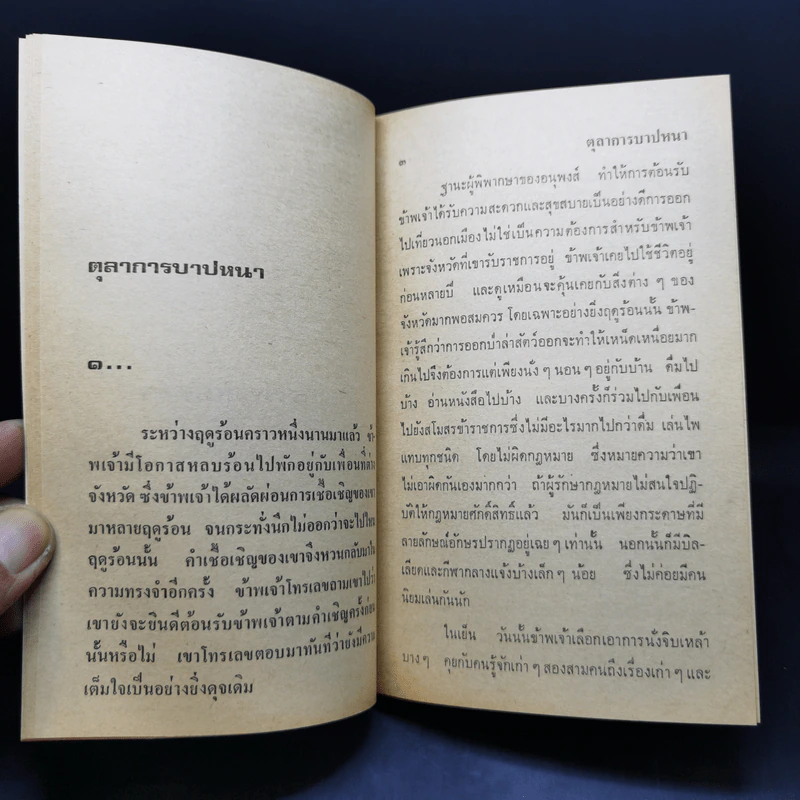 ตุลาการบาปหนา
๑...
ระหว่างฤดูร้อนคราวหนึ่งนานมาแล้ว ข้า
พเจ้ามีโอกาสหลบร้อนไปพักอยู่กับเพื่อนที่ต่าง
จังหวัด ซึ่งข้าพเจ้าได้ผลัดผ่อนการเชื้อเชิญของเขา
มาหลายฤดูร้อน จนกระทั่งนึกไม่ออกว่าจะไปไหน
ฤดูร้อนนั้น คำเชื้อเชิญของเขาจึงหวนกลับมาใน
ความทรงจำอีกครั้ง ข้าพเจ้าโทรเลขถามเขาไปว่า
เขายังจะยินดีต้อนรับข้าพเจ้าตามคำเชิญครั้งก่อน
นั้นหรือไม่ เขาโทรเลขตอบมาทันทีว่ายังมีความ
เต็มใจเป็นอย่างยิ่งดุจเดิม
ตุลาการบาปหนา
๓
ฐานะผู้พิพากษาของอนุพงส์ ทำให้การต้อนรับ
ข้าพเจ้าได้รับความสะดวกและสุขสบายเป็นอย่างดีการออก
ไปเที่ยวนอกเมืองไม่ใช่เป็นความต้องการสำหรับข้าพเจ้า
เพราะจังหวัดที่เขารับราชการอยู่ ข้าพเจ้าเคยไปใช้ชีวิตอยู่
ก่อนหลายปี และดูเหมือนจะคุ้นเคยกับสิ่งต่าง ๆ ของ
จังหวัดมากพอสมควร โดยเฉพาะอย่างยิ่งฤดูร้อนนั้น ข้าพ-
เจ้ารู้สึกว่าการออกป่าล่าสัตว์ออกจะทำให้เหน็ดเหนื่อยมาก
เกินไปจึงต้องการแต่เพียงนั่ง ๆ นอน ๆ อยู่กับบ้าน ดื่มไป
บ้าง อ่านหนังสือไปบ้าง และบางครั้งก็ร่วมไปกับเพื่อน
ไปยังสโมสรข้าราชการซึ่งไม่มีอะไรมากไปกว่าดื่ม เล่นไพ่
แทบทุกชนิด โดยไม่ผิดกฎหมาย ซึ่งหมายความว่าเขา
ไม่เอาผิดกันเองมากกว่า ถ้าผู้รักษากฎหมายไม่สนใจปฏิ-
บัติให้กฎหมายศักดิ์สิทธิ์แล้ว มันก็เป็นเพียงกระดาษที่มี
ลายลักษณ์อักษรปรากฏอยู่เฉย ๆ เท่านั้น นอกนั้นก็มีบิล-
เลียดและกีฬากลางแจ้งบ้างเล็ก ๆ น้อย ซึ่งไม่ค่อยมีคน
นิยมเล่นกันนัก
ในเย็น วันนั้นข้าพเจ้าเลือกเอาการนั่งจิบเหล้า
บาง ๆ คุยกับคนรู้จักเก่า ๆ สองสามคนถึงเรื่องเก่า ๆ และ